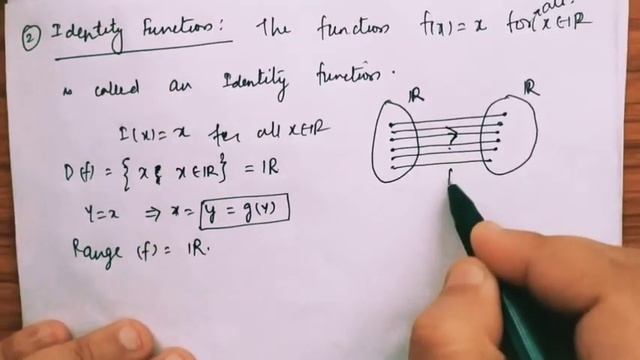 ② Identity Function: The function f(x) = x for all x ∈ IR
is called an Identity function.
I(x) = x for all x ∈ IR
D(f) = { x ; x ∈ IR } = IR
Y = x ⇒ x = y = g(y)
Range (f) = IR.
IR IR
?
f